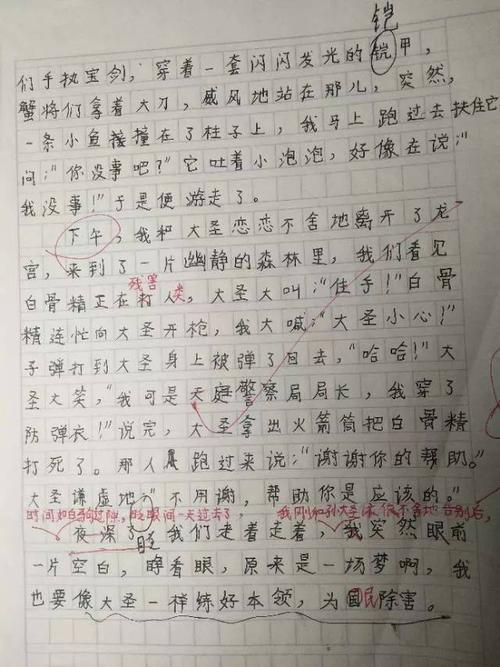 铠
们手执宝剑，穿着一套闪闪发光的铠甲，
蟹将们拿着大刀，威风地站在那儿，突然，
一条小鱼接撞在了柱子上，我马上跑过去扶住它
问："你没事吧？"它吐着小泡泡，好像在说："
我没事！"于是便游走了。
下午，我和大圣恋恋不舍地离开了龙
宫，来到了一片幽静的森林里，我们看见
残害
白骨精正在打人类，大圣大叫："住手！"白骨
精连忙向大圣开枪，我大喊："大圣小心！"
子弹打到大圣身上被弹了回去，"哈哈！"大
圣大笑，"我可是天庭警察局局长，我穿了
防弹衣！"说完，大圣拿出火箭筒把白骨精
打死了。那人跑过来说："谢谢你的帮助。"
大圣谦虚地："不用谢，帮助你是应该的。"
时间如白驹过隙，眨眼间一天过去了，我刚和孙大圣依依不舍地告别后，
夜深了，我们走着走着，我突然眼前
旺
一片空白，睁着眼，原来是一场梦啊，我
也要像大圣一样练好本领，为国民除害。